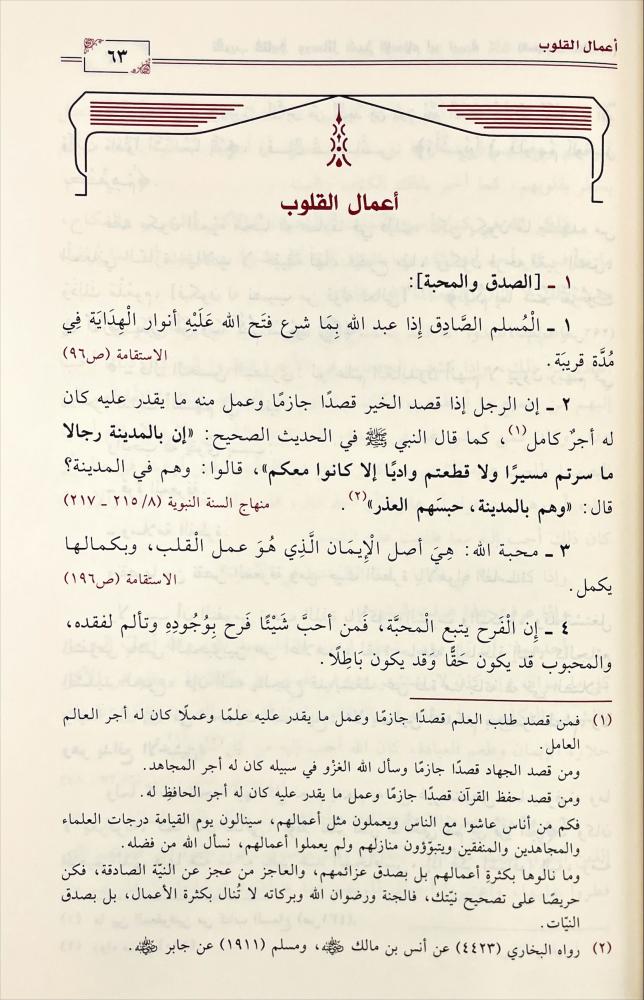 أعمال القلوب
٦٣
أعمال القلوب
١ ـ [الصدق والمحبة]:
١ ـ الْمُسلم الصَّادِق إِذا عبد الله بِمَا شرع فتح الله عَلَيْهِ أنوار الْهِدَايَة فِي
مُدَّة قريبَة. الاستقامة (ص٩٦)
٢ ـ إن الرجل إذا قصد الخير قصدًا جازمًا وعمل منه ما يقدر عليه كان
له أجرٌ كامل(١)، كما قال النبي ﷺ في الحديث الصحيح: «إن بالمدينة رجالا
ما سرتم مسيرًا ولا قطعتم واديًا إلا كانوا معكم»، قالوا: وهم في المدينة؟
قال: «وهم بالمدينة، حبسَهم العذر»(٢). منهاج السنة النبوية (٢١٥/٨ ـ ٢١٧)
٣ ـ محبة الله: هِيَ أصل الْإِيمَان الَّذِي هُوَ عمل الْقلب، وبكمالها
يكمل. الاستقامة (ص١٩٦)
٤ ـ إن الْفَرح يتبع الْمحبَّة، فَمن أحبَّ شَيْئًا فَرح بِوُجُودِهِ وتألم لفقده،
والمحبوب قد يكون حَقًّا وَقد يكون بَاطِلًا.
(١) فمن قصد طلب العلم قصدًا جازمًا وعمل ما يقدر عليه علمًا وعملًا كان له أجر العالم
العامل.
ومن قصد الجهاد قصدًا جازمًا وسأل الله الغزْو في سبيله كان له أجر المجاهد.
ومن قصد حفظ القرآن قصدًا جازمًا وعمل ما يقدر عليه كان له أجر الحافظِ له.
فكم من أناس عاشوا مع الناس ويعملون مثل أعمالهم، سينالون يوم القيامة درجات العلماء
والمجاهدين والمنفقين ويتبوّؤون منازلهم ولم يعملوا أعمالهم، نسأل الله من فضله.
وما نالوها بكثرةِ أعمالهم بل بصدق عزائمهم، والعاجز من عجز عن النيّة الصادقة، فكن
حريصًا على تصحيح نيّتك، فالجنة ورضوان الله وبركاته لا تُنال بكثرة الأعمال، بل بصدق
النيّات.
(٢) رواه البخاري (٤٤٢٣) عن أنس بن مالك رضي الله عنه، ومسلم (١٩١١) عن جابر رضي الله عنه.